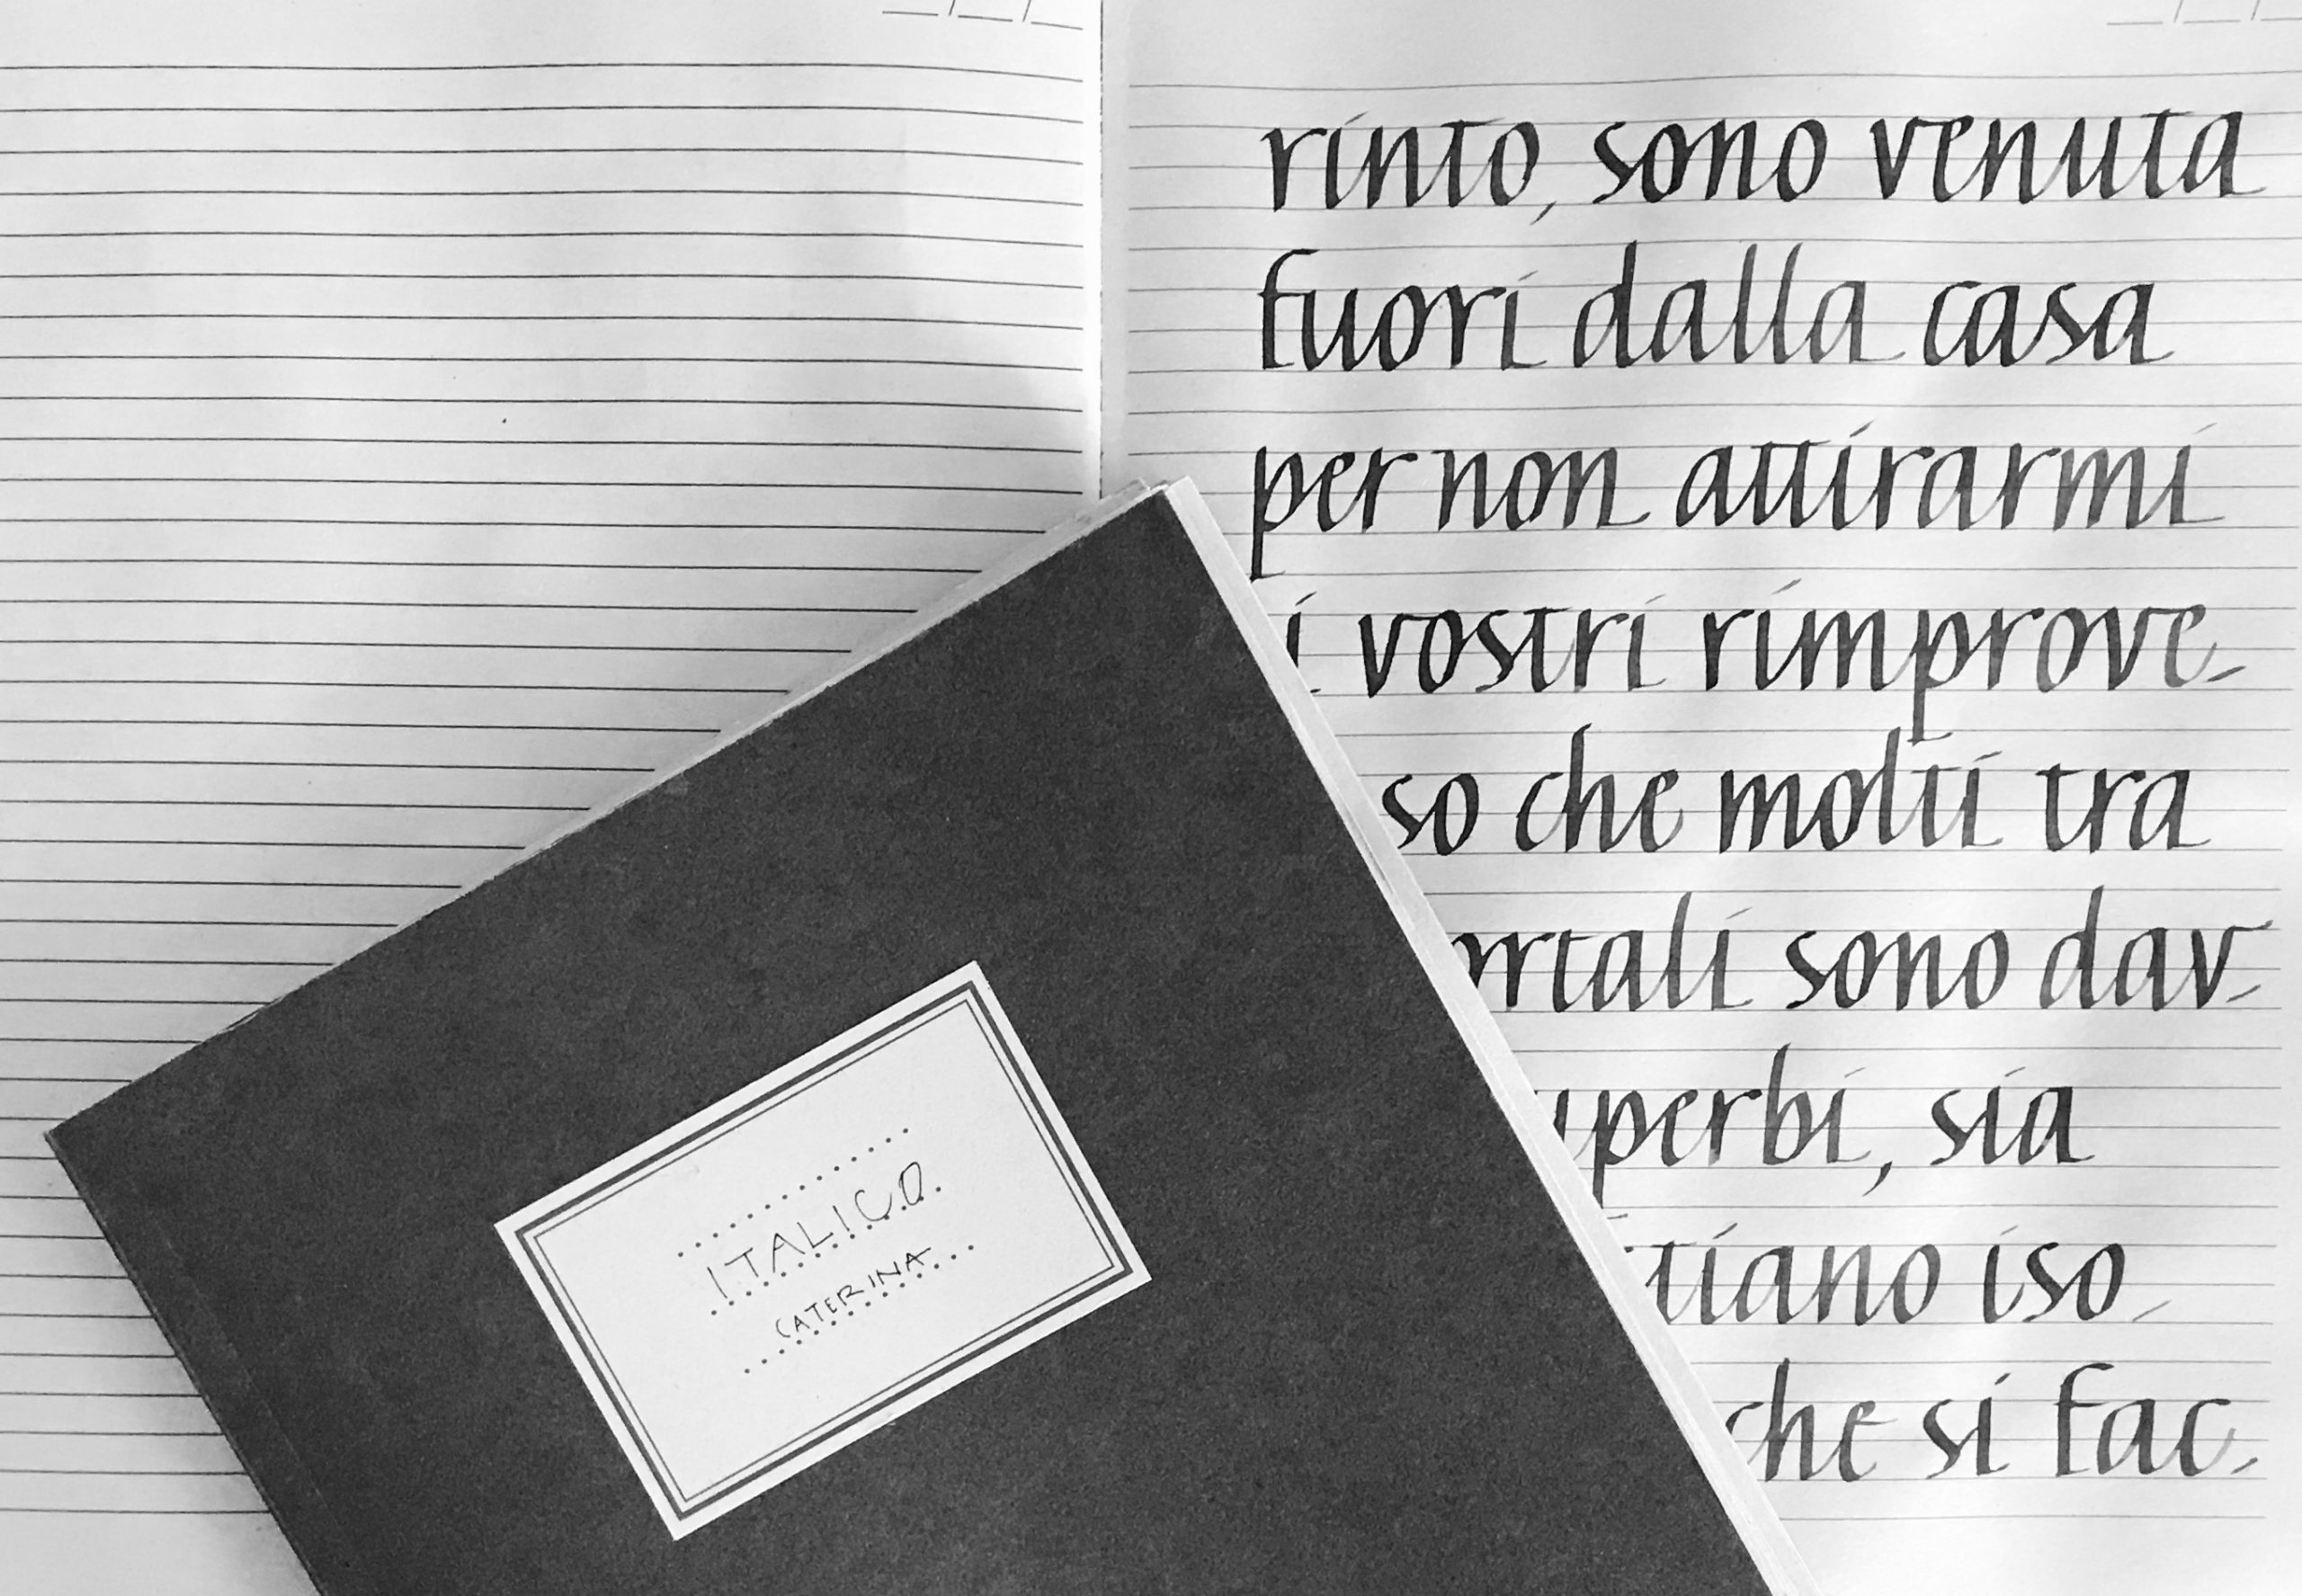 rinto, sono venuta
fuori dalla casa
per non attirarmi
i vostri rimprove-
so che molti tra
ortali sono dav-
perbi, sia
tiano iso-
che si fac-
ITALICO
CATERINA